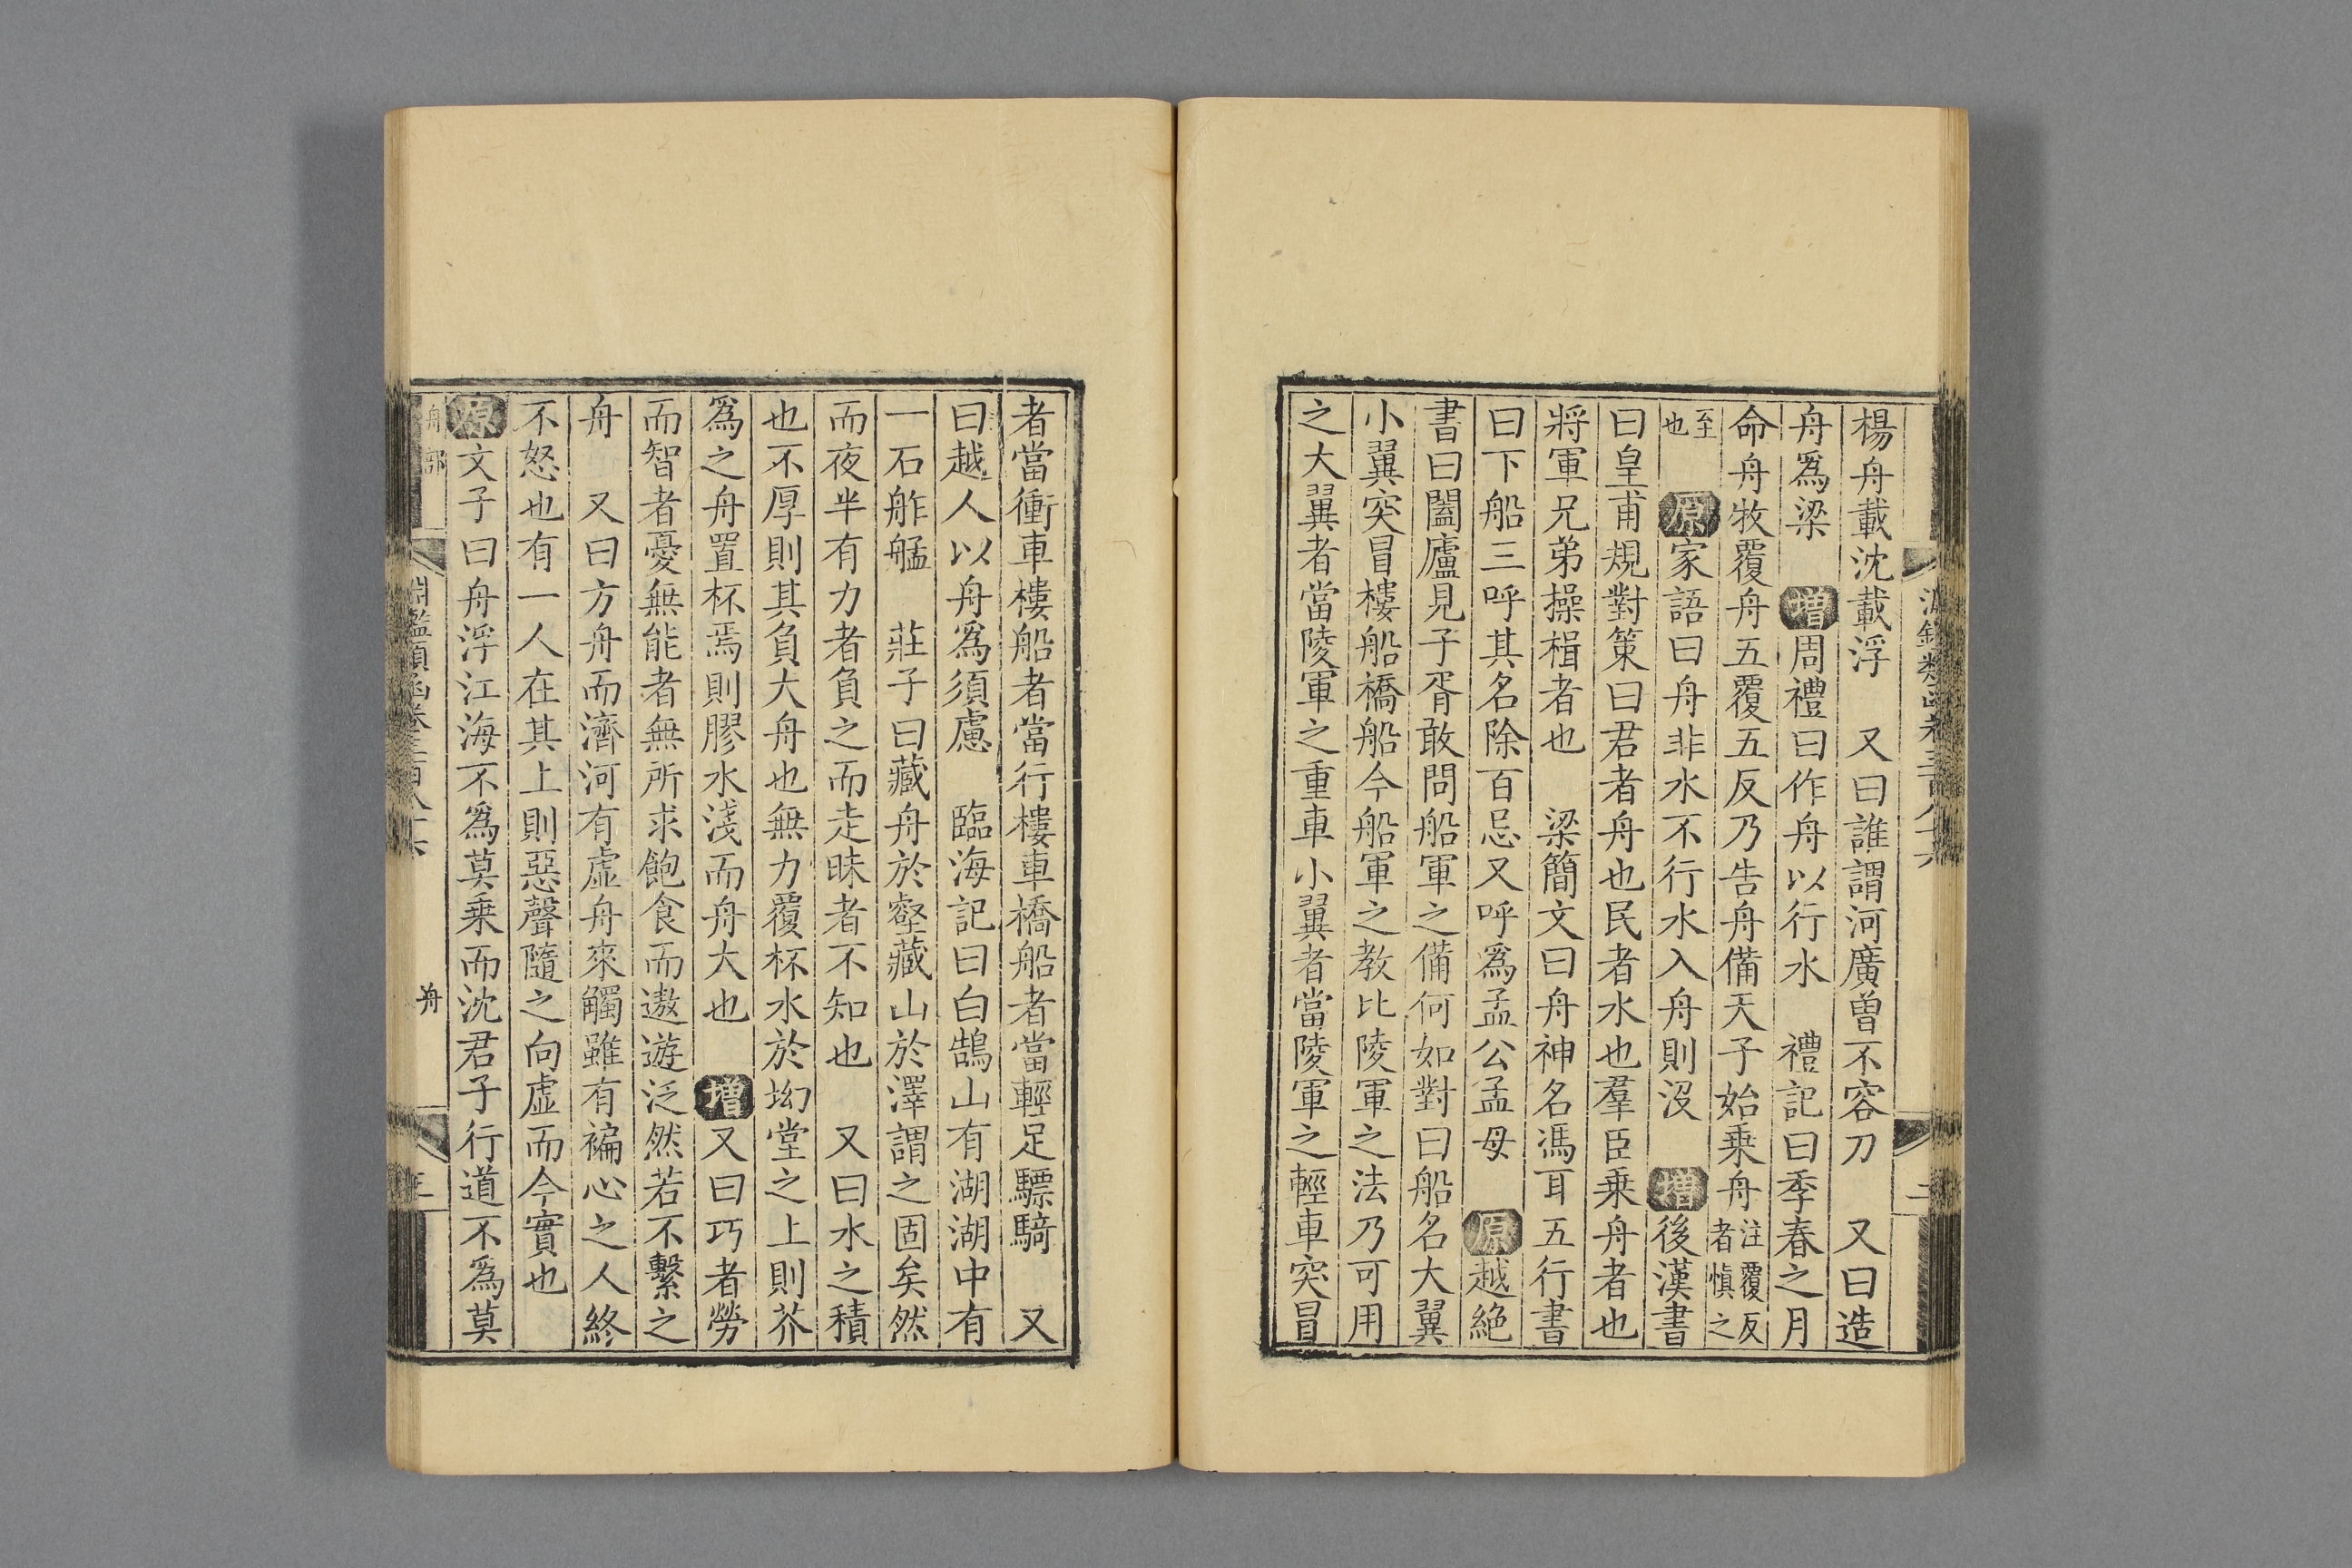 楊舟載沈載浮　又曰誰謂河廣曾不容刀　又曰造
舟爲梁　增周禮曰作舟以行水　禮記曰季春之月
命舟牧覆舟五覆五反乃告舟備天子始乘舟注覆反者愼之
至也　原家語曰舟非水不行水入舟則沒　增後漢書
曰皇甫規對策曰君者舟也民者水也羣臣乘舟者也
將軍兄弟操楫者也　梁簡文曰舟神名馮耳五行書
曰下船三呼其名除百忌又呼爲孟公孟母　原越絕
書曰闔廬見子胥敢問船軍之備何如對曰船名大翼
小翼突冒樓船橋船今船軍之教比陵軍之法乃可用
之大翼者當陵軍之重車小翼者當陵軍之輕車突冒
者當衝車樓船者當行樓車橋船者當輕足驃騎　又
曰越人以舟爲須慮　臨海記曰白鵠山有湖湖中有
一石舴艋　莊子曰藏舟於壑藏山於澤謂之固矣然
而夜半有力者負之而走昧者不知也　又曰水之積
也不厚則其負大舟也無力覆杯水於坳堂之上則芥
爲之舟置杯焉則膠水淺而舟大也　增又曰巧者勞
而智者憂無能者無所求飽食而遨遊泛然若不繫之
舟　又曰方舟而濟河有虛舟來觸雖有褊心之人終
不怒也有一人在其上則惡聲隨之向虛而今實也
原文子曰舟浮江海不爲莫乘而沈君子行道不爲莫
舟部　淵鑑類函卷三百八十六　舟　三